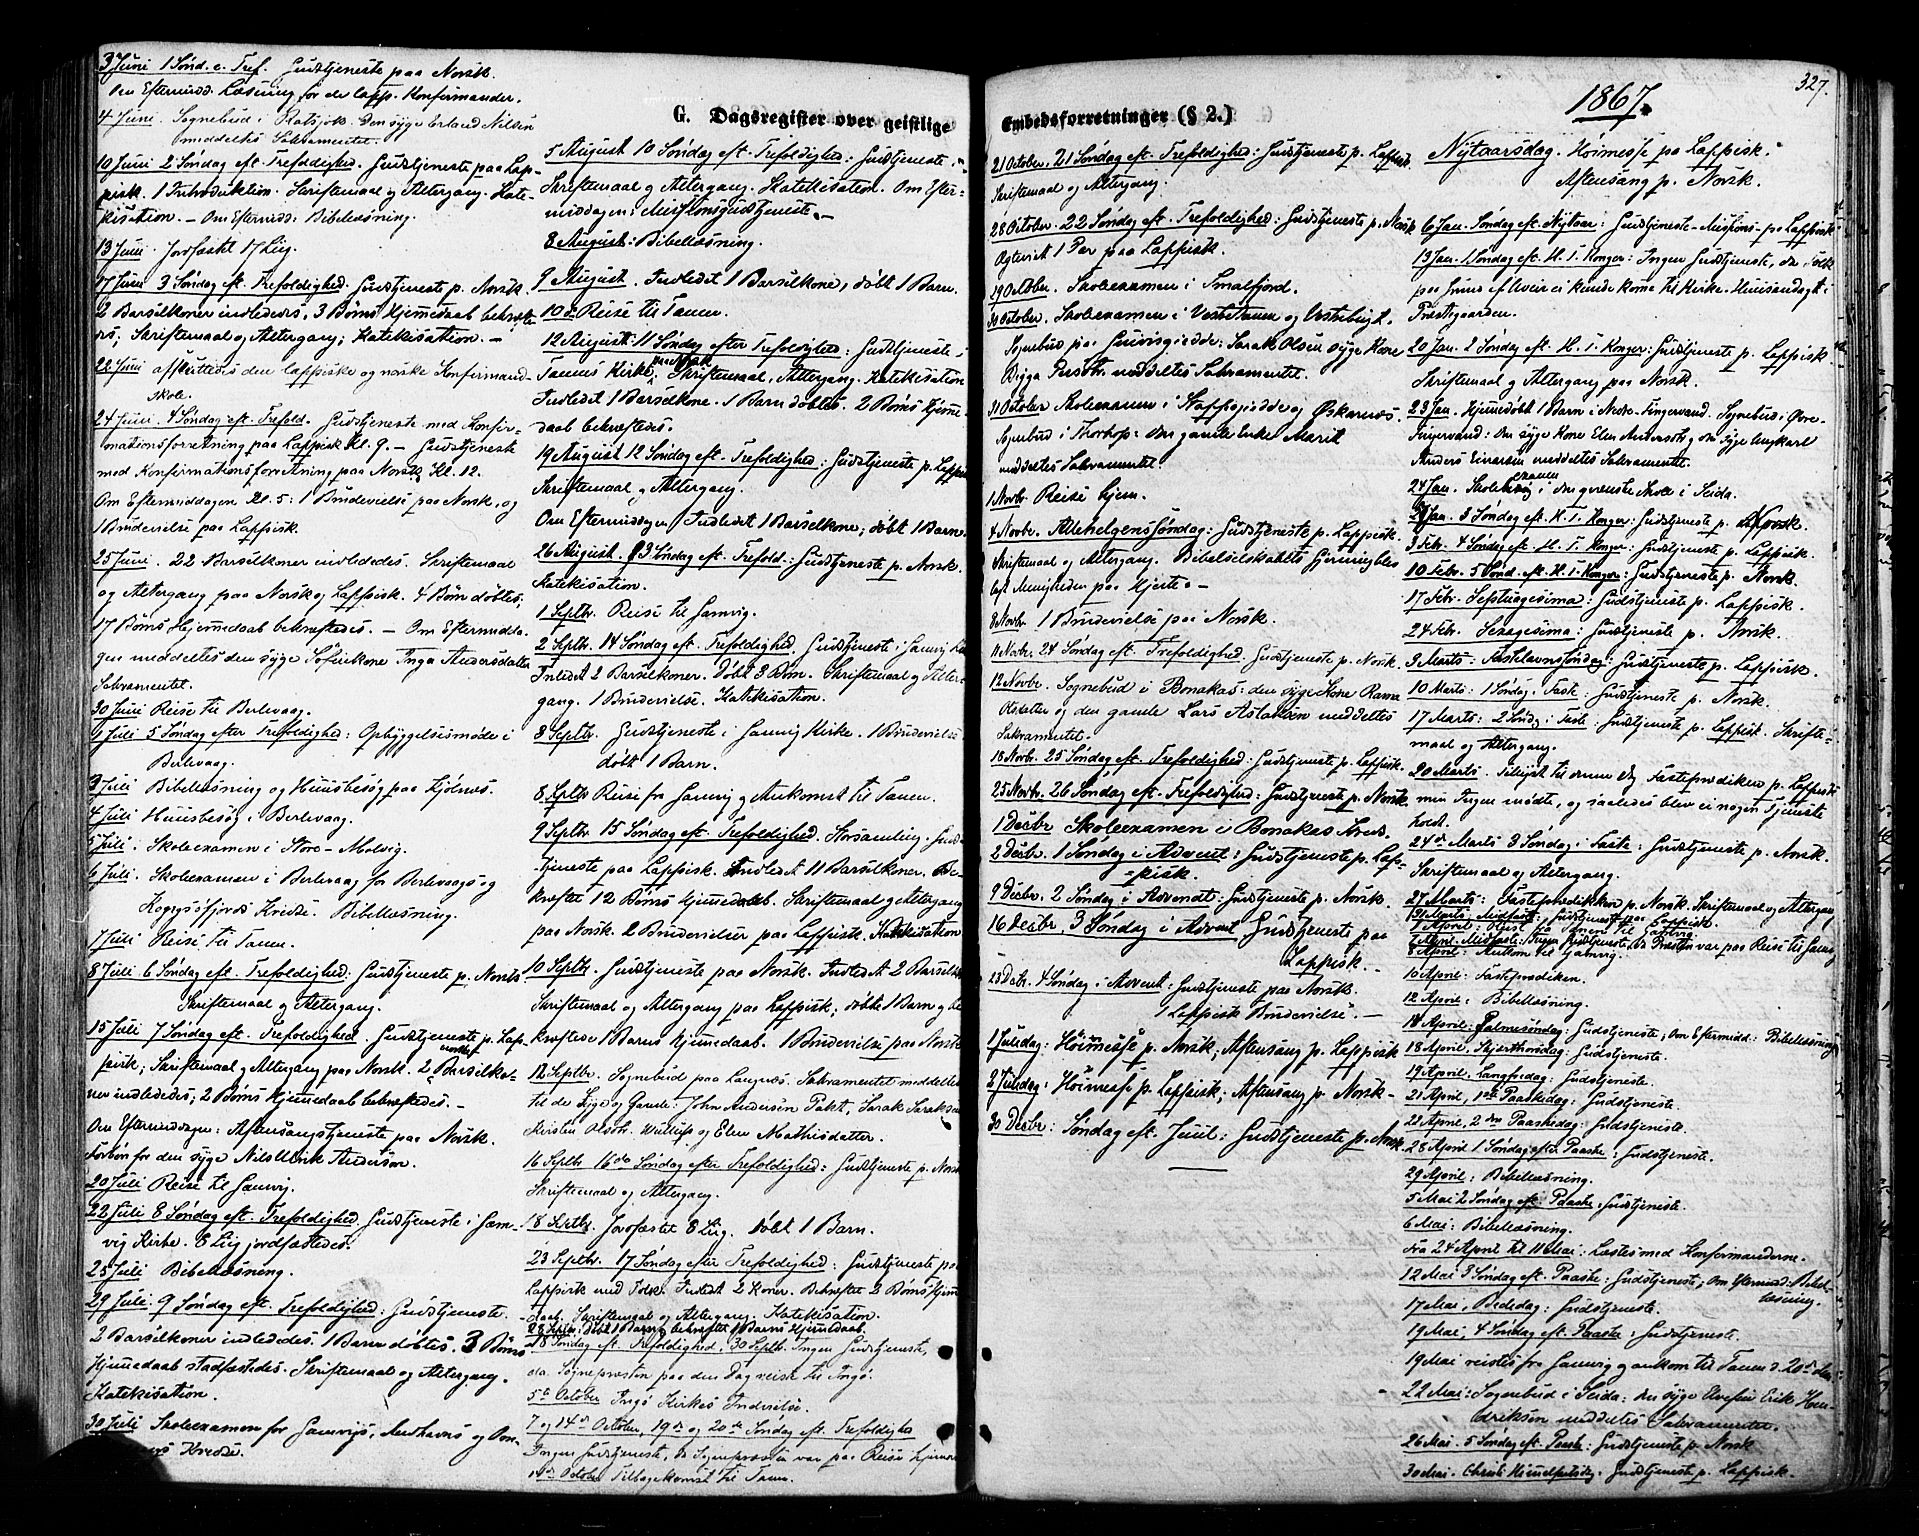 3 Juni 1 Sønd. e. Tref. Gudstjeneste paa Norsk.
Om Eftermidd. Læsning for de lapp. Konfirmander.
4 Juni. Sognebud i. Den syge Erland Nilsen
meddeltes Sakramentet.
10 Juni 2 Søndag eft. Trefoldighed. Gudstjeneste paa Lap-
pisk. 1 Introduktion. Skriftemaal og Altergang. Kate-
kisation. – Om Eftermidd: Bibellæsning.
13 Juni. Jordfæstet 17 Liig.
17 Juni 3 Søndag eft. Trefoldighed. Gudstjeneste p. Norsk.
2 Barselkoner indlededes, 3 Børns Hjemmedaab bekræfte-
des; Skriftemaal og Altergang; Katekisation. –
22 Juni afsluttedes den lappiske og norske Konfirmand-
skole.
24 Juni. 4 Søndag eft. Trefold. Gudstjeneste med Konfir-
mationsforretning paa Lappisk Kl. 9. – Gudstjeneste
med Konfirmationsforretning paa Norsk Kl. 12.
Om Eftermiddagen Kl. 5: 1 Brudevielse paa Norsk, og
1 Brudevielse paa Lappisk.
25 Juni. 22 Barselkoner indlededes. Skriftemaal
og Altergang paa Norsk og Lappisk. 4 Børn døbtes,
17 Børns Hjemmedaab bekræftedes. – Om Eftermidda-
gen meddeltes den syge Inga Andersdatter
Sakramentet.
30 Juni Reise til Berlevaag.
1 Juli 5 Søndag efter Trefoldighed: Opbyggelsesmøde i
Berlevaag.
3 Juli Bibellæsning og Huusbesøg paa Kjølnes.
4 Juli Huusbesøg i Berlevaag.
5 Juli. Skoleexamen i Store-Molvig.
6 Juli. Skoleexamen i Berlevaag for Berlevaags og
Kongsøfjords Kredse. Bibellæsning.
7 Juli Reise til Tanen.
8 Juli 6 Søndag eft. Trefoldighed. Gudstjeneste p. Norsk
Skriftemaal og Altergang.
15 Juli 7 Søndag eft. Trefoldighed. Gudstjeneste p. Lap-
pisk; Skriftemaal og Altergang paa Norsk. 2 Barselko-
ner indlededes; 2 Børns Hjemmedaab bekræftedes. –
Om Eftermiddagen: Aftensangstjeneste paa Norsk.
Forbøn for den syge Nils Anderson.
20 Juli Reise til Gamvig.
22 Juli 8 Søndag eft. Trefoldighed. Gudstjeneste i Gam-
vig Kirke. 8 Liig jordfæstedes.
25 Juli Bibellæsning.
29 Juli. 9 Søndag eft. Trefoldighed: Gudstjeneste.
2 Barselkoner indlededes. 1 Barn døbtes. 3 Børns
Hjemmedaab stadfæstedes. Skriftemaal og Altergang.
Katekisation.
30 Juli Skoleexamen for Gamvigs, og Om-
Kredse.
G. Dagsregister over geistlige
5 August 10 Søndag eft. Trefoldighed: Gudstjeneste.
Skriftemaal og Altergang. Katekisation. Om Efter-
middagen: Missionsgudstjeneste. –
8 August: Bibellæsning.
9 August. Indledet 1 Barselkone, døbt 1 Barn.
10de Reise til Tanen.
12 August. 11 Søndag efter Trefoldighed: Gudstjeneste i
Tanens Kirke paa Norsk. Skriftemaal, Altergang. Katekisation
Indledet 1 Barselkone. 1 Barn døbtes. 2 Børns Hjemme-
daab bekræftedes.
19 August 12 Søndag eft. Trefoldighed: Gudstjeneste p. Lappisk
Skriftemaal og Altergang.
Om Eftermiddagen Indledet 1 Barselkone; døbt 1 Barn.
26 August. 13 Søndag eft. Trefold.: Gudstjeneste p. Norsk.
Katekisation.
1 Septbr. Reise til Gamvig.
2 Septbr. 14 Søndag eft. Trefoldighed. Gudstjeneste i Gamvig
Indledet 2 Barselkoner. Døbt 3 Børn. Skriftemaal og Alter-
gang. 1 Brudevielse. Katekisation.
8 Septbr. Gudstjeneste i Gamvig Kirke. 1 Brudevielse
døbt 1 Barn.
8 Septbr Reise fra Gamvig og Ankomst til Tanen.
9 Septbr. 15 Søndag eft. Trefoldighed. Storsamling. Guds-
tjeneste paa Lappisk. Indledet 11 Barselkoner. Be-
kræftet 12 Børns Hjemmedaab. Skriftemaal og Altergang
paa Norsk. 2 Brudevielser paa Lappisk. Katekisation
10 Septbr. Gudstjeneste paa Norsk. Indledt 2 Barselk.
Skriftemaal og Altergang paa Lappisk; døbte 1 Barn og be-
kræftede 1 Barns Hjemmedaab. 1 Brudevielse paa Norsk
12 Septbr. Sognebud paa Langnæs. Sakramentet meddeltes
til de Syge og Gamle: John Andersen, Sarak
Kirsten og Elen Mathisdatter.
16 Septbr 16de Søndag efter Trefoldighed: Gudstjeneste p. Norsk
Skriftemaal og Altergang.
18 Septbr. Jordfæstet 8 Liig. Døbt 1 Barn.
23 Septbr. 17 Søndag efter Trefoldighed: Gudstjeneste paa
Lappisk med Tolk. Indledt 2 Koner. Bekræftet 2 Børns Hjem-
daab. Skriftemaal og Altergang. Katekisation.
28 Septbr. døbt 1 Barn og bekræftet 1 Barns Hjemmedaab.
18 Søndag eft. Trefoldighed, 30 Septbr. Ingen Gudstjeneste,
da Sognepresten paa den Dag reiste til Ingø.
5te October Ingø Kirkes Indvielse.
7 og 14de October, 19de og 20de Søndag eft. Trefoldighed
Ingen Gudstjeneste, da Sognepræsten var paa Reise hjem.
October Tilbagekomst til Tanen.
327.
Embedsforretninger (§ 2.)
21 October. 21 Søndag eft. Trefoldighed: Gudstjeneste p. Lappisk
Skriftemaal og Altergang.
28 October. 22 Søndag eft. Trefoldighed: Gudstjeneste p. Norsk
Ægteviet 1 Par paa Lappisk.
29 Octbr. Skoleexamen i Smalfjord.
30 October. Skoleexamen i Vestertanen og Vestrebugt.
Sognebud paa: Sarak Olsens syge Kone
Bigga Persdtr. meddeltes Sakramentet.
31 October Skoleexamen i og
Sognebud i: den gamle Enke Marit
meddeltes Sakramentet.
1 Novbr Reise hjem.
4 Novbr. Allehelgenssøndag: Gudstjeneste p. Lappisk.
Skriftemaal og Altergang. Bibelselskabets Gjerning blev
lagt Menigheden paa Hjerte. –
8 Novbr. 1 Brudevielse paa Norsk.
11 Novbr. 24 Søndag eft. Trefoldighed. Gudstjeneste p. Norsk.
12 Novbr. Sognebud i Bonakas: den syge Kone
og den gamle Lars Aslaksen meddeltes
Sakramentet.
18 Novbr. 25 Søndag eft. Trefoldighed: Gudstjeneste p. Lappisk.
25 Novbr. 26 Søndag eft. Trefoldighed: Gudstjeneste p. Norsk.
1 Decbr Skoleexamen i Bonakas Kreds.
2 Decbr. 1 Søndag i Advent: Gudstjeneste p. Lap-
pisk.
9 Decbr. 2 Søndag i Advendt: Gudstjeneste p. Norsk.
16 Decbr. 3 Søndag i Advent Gudstjeneste paa
Lappisk. –
23 Decbr. 4 Søndag i Advent: Gudstjeneste paa Norsk.
1 Lappisk Brudevielse. –
1 Juledag: Høimesse p. Norsk; Aftensang p. Lappisk
2 Juledag: Høimesse p. Lappisk; Aftensang p. Norsk –
30 Decbr: Søndag eft. Juul: Gudstjeneste p. Norsk.
1867.
Nytaarsdag. Høimesse pa Lappisk.
Aftensang p. Norsk.
6 Jan. Søndag eft. Nytaar: Gudstjeneste – Missions – pa Lappisk
13 Jan. 1 Søndag eft. H. 3. Konger: Ingen Gudstjeneste, da Folk
paa Grund af Uveir ei kunde komme til Kirke. Huusandagt i
Præstegaarden.
20 Jan. 2 Søndag eft. H. 3. Konger: Gudstjeneste p. Lappisk
Skriftemaal og Altergang paa Norsk.
23 Jan. Hjemmedøbt 1 Barn i Nedre-Fingervand. Sognebud i Øvre-
Fingervand: Den syge Kone Elen Andersdtr og den syge Ungkarl
Anders Einarsen meddeltes Sakramentet.
24 Jan. Skoleexamen i den Skole i Seida.
27 Jan. 3 Søndag eft. H. 3. Konger: Gudstjeneste p. Norsk.
3 Febr. 4 Søndag eft. H. 3. Konger: Gudstjeneste p. Lappisk.
10 Febr. 5 Sønd. eft. H. 3. Konger: Gudstjeneste p. Norsk.
17 Febr. Septuagesima: Gudstjeneste p. Lappisk.
24 Febr. Sexagesima: Gudstjeneste p. Norsk.
3 Marts. Fastelavnssøndag: Gudstjeneste p. Lappisk.
10 Marts: 1 Søndag i Faste: Gudstjeneste p. Norsk.
17 Marts: 2 Søndag i Faste: Gudstjeneste p. Lappisk. Skrifte-
maal og Altergang.
20 Marts. Tillyst til denne Dag Fasteprædiken p. Lappisk
men Ingen mødte, og saaledes blev ei nogen Tjeneste
holdt.
24de Marts 3 Søndag i Faste: Gudstjeneste p. Norsk.
Skriftemaal og Altergang.
27 Marts: Fasteprædiken p. Norsk. Skriftemaal og Altergang
31 Marts. Midfaste: Gudstjeneste paa Lappisk.
1 April: Reise fra Tanen til Gamvig.
7 April. Midfaste: Ingen Gudstjeneste, da Præsten var paa Reise til Gamvig
8 April: Ankom til Gamvig.
10 April: Fasteprædiken.
12 April: Bibellæsning.
14 April: Palmesøndag: Gudstjeneste; Om Eftermidd: Bibellæsning
18 April, Skjærthorsdag: Gudstjeneste.
19 April, Langfredag: Gudstjeneste.
21 April, 1ste Paaskedag: Gudstjeneste.
22 April, 2den Paaskedag: Gudstjeneste.
28 April 1 Søndag efter Paaske: Gudstjeneste.
29 April: Bibellæsning.
5 Mai 2 Søndag eft. Paaske: Gudstjeneste.
6 Mai: Bibellæsning.
Fra 24 April til 11 Mai: Læstes med Konfirmanderne.
12 Mai 3 Søndag eft. Paaske: Gudstjeneste; Om Eftermid: Bibel-
læsning.
17 Mai, Bededag: Gudstjeneste.
19 Mai, 4 Søndag eft. Paaske: Gudstjeneste.
19 Mai reistes fra Gamvig og ankom til Tanen d. 20de Mai
22 Mai: Sognebud i Seida: den syge Erik Hen-
driksen meddeltes Sakramentet.
26 Mai. 5 Søndag eft. Paaske: Gudstjeneste p. Norsk
30 Mai. Christi Himmelfartsdag: Gudstjeneste p. Lappisk.